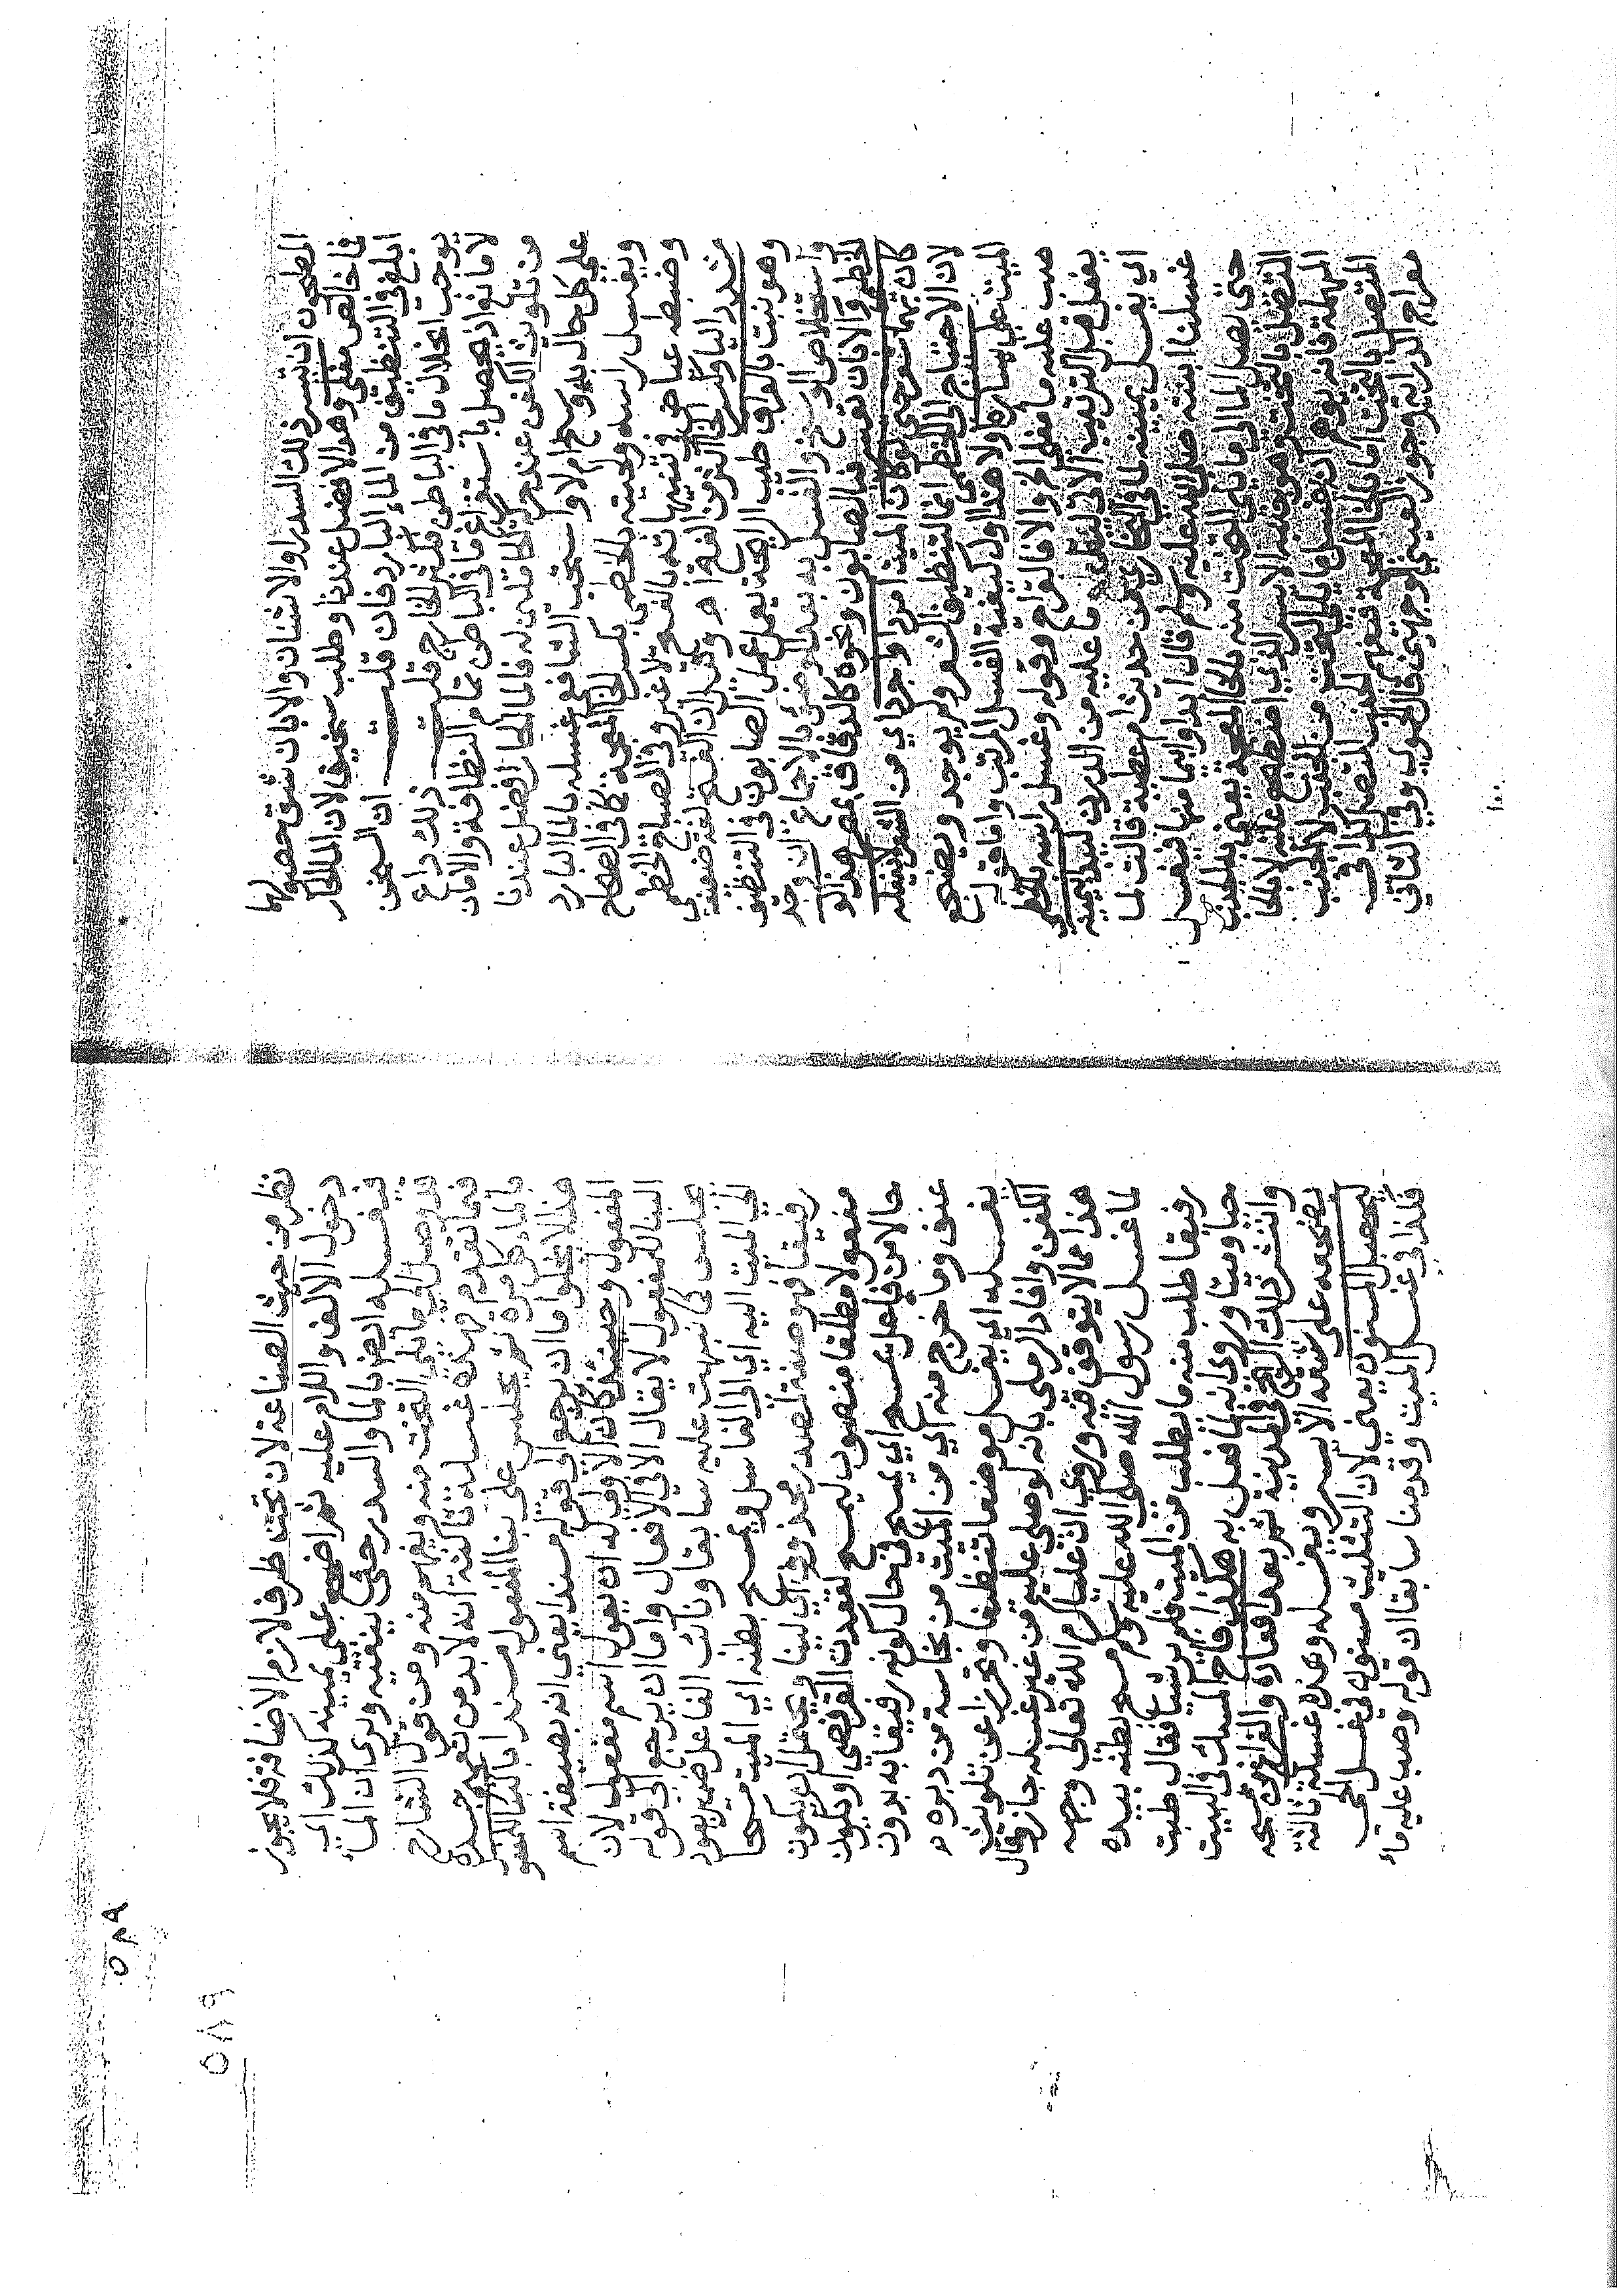 المطحون ان تيسر ذلك السدر او الاشنان والا بان شق حصولهما
فماء خالص مغلي وهو الافضل عندنا وطلب سخنيه لان الماء الحار
ابلغ في التنظيف من الماء البارد فان قلت ان السخن
يوجب انحلال ما في الباطن فيكثر الخارج قلت ذلك داع
لا مانع اذ يحصل باستفراغ ما في الباطن تمام النظافة والامان
من تلويث الكفن عند حركة الحاملين له فالماء الحار افضل عندنا
على كل حال به وسخ ام لا واستحب الشافعي غسله بالماء البارد
ويغسل راسه ولحيته بالخطمي بكسر الخاء المعجمة كما في الصحاح
وضبطه عياض في تنبيهاته بالفتح لا غير وفي المصباح الخطمي
مشدد الياء وكسر الخاء اكثر من الفتح اه وقيل ان الفتح لغة ضعيفة
وهو نبت بالعراق طيب الرائحة يعمل عمل الصابون في التنظيف
واستخلاص الوسخ والغسل به بعد الوضوء بالاجماع ان وجد
الخطمي والا بان تعسر فبالصابون ونحوه كالدقاق بمصر هذا لو
كان بهما شعر حتى لو كان الميت امرد او اجرد اي من الشعر لا يفعله
لان الاحتياج الى الخطمي انما لتنظيف الشعر ولم يوجد ويضجع
الميت على يساره اولا هذا اول كيفية الغسل المرتب واما قوله
صب عليه ماء مغلي الخ والا فالقراح وقوله وغسل راسه بالخطمي
يفعل قبل الترتيب الاتي ما عليه من الدرن ليبدا بيمينه
اي يغسل يمينه لما في البخاري من حديث ام عطية قالت لما
غسلنا ابنته صلى الله عليه وسلم قال ابدوا بميامنها فيغسل
حتى يصل الماء الى ما يلي التخت منه بالخاء المعجمة يعني بالجنب
المتصل بالتخت وهو جنبه الايسر الذي اضطجع عليه لا بالحاء
المهملة فانه يوهم ان غسل ما يلي التحت من الجنب لا الجنب
المتصل بالتخت اما بالخاء المعجمة فيفهم الجنب المتصل كذا في
معراج الدراية وجوز العيني الوجهين قال الحموي وفي الثاني
نظر من حيث الصناعة لان تحت ظرف لازم الاضافة فلا يجوز
دخول الالف واللام عليه ثم اضجع على يمينه كذلك اي
فيغسله ايضا بالماء والسدر حتى ينقيه ويرى ان الماء
قد وصل الى ما يلي التخت منه ويفهم منه ومن قول الشارح
فيما تقدم وهذه غسلة ثالثة انه لا بد من تعميم جسده
بالماء كل مرة ثم يجلس على بناء المفعول مسندا بالبناء للمفعول
فلا يخلو اما ان يرجع الى قوله مسندا يعني انه بصيغة اسم
المفعول وحينئذ كان الاولى له ان يقول اسم مفعول لان
البناء للمفعول لا يقال الا في الافعال واما ان يرجع الى قوله
يجلس كما نبهت عليه سابقا ونائب الفاعل ضمير يعود
الى الميت اليه اي الى الغاسل ويمسح بطنه اي الميت مسحا
رفيقا فهو صفة لمصدر محذوف اي لينا ويحتمل ان يكون
مفعولا مطلقا منصوب ليمسح كقعدت القرفصى او يكون
حالا من فاعل يمسح اي يمسح في حال كونه رفيقا به بدون
عنف وما خرج منه اي من الميت من نجاسة من دبره
يغسله اي يغسل موضعها تنظيفا وتحرزا عن تلويث
الكفن وافاد الرملي بانه لو صلى عليه من غير غسله جاز وقال
هذا مما لا يتوقف فيه وروي ان عليا كرم الله تعالى وجهه
لما غسل رسول الله صلى الله عليه وسلم مسح بطنه بيده
رفيقا طلب منه ما يطلب من الميت فلم ير شيئا فقال طبت
حيا وميتا وروي انه لما فعل به هكذا فاح المسك في البيت
وانتشر ذلك الريح في المدينة ثم بعد اقعاده والفراغ من مسحه
يضجعه على شقه الايسر ويغسله وهذه غسلة ثالثة
ليحصل المسنون يعني لان التثليث مسنون في غسل الحي
فكذا في غسل الميت وقدمنا سابقا ان قوله وصب عليه ماء
٥٨٩
٥٨٩